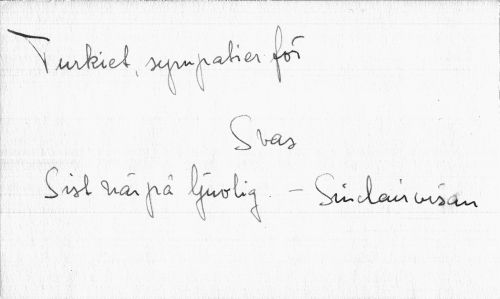 Turkiet, sympatier för
Svas
Sist när på ljuvlig. - Sinclairvisan